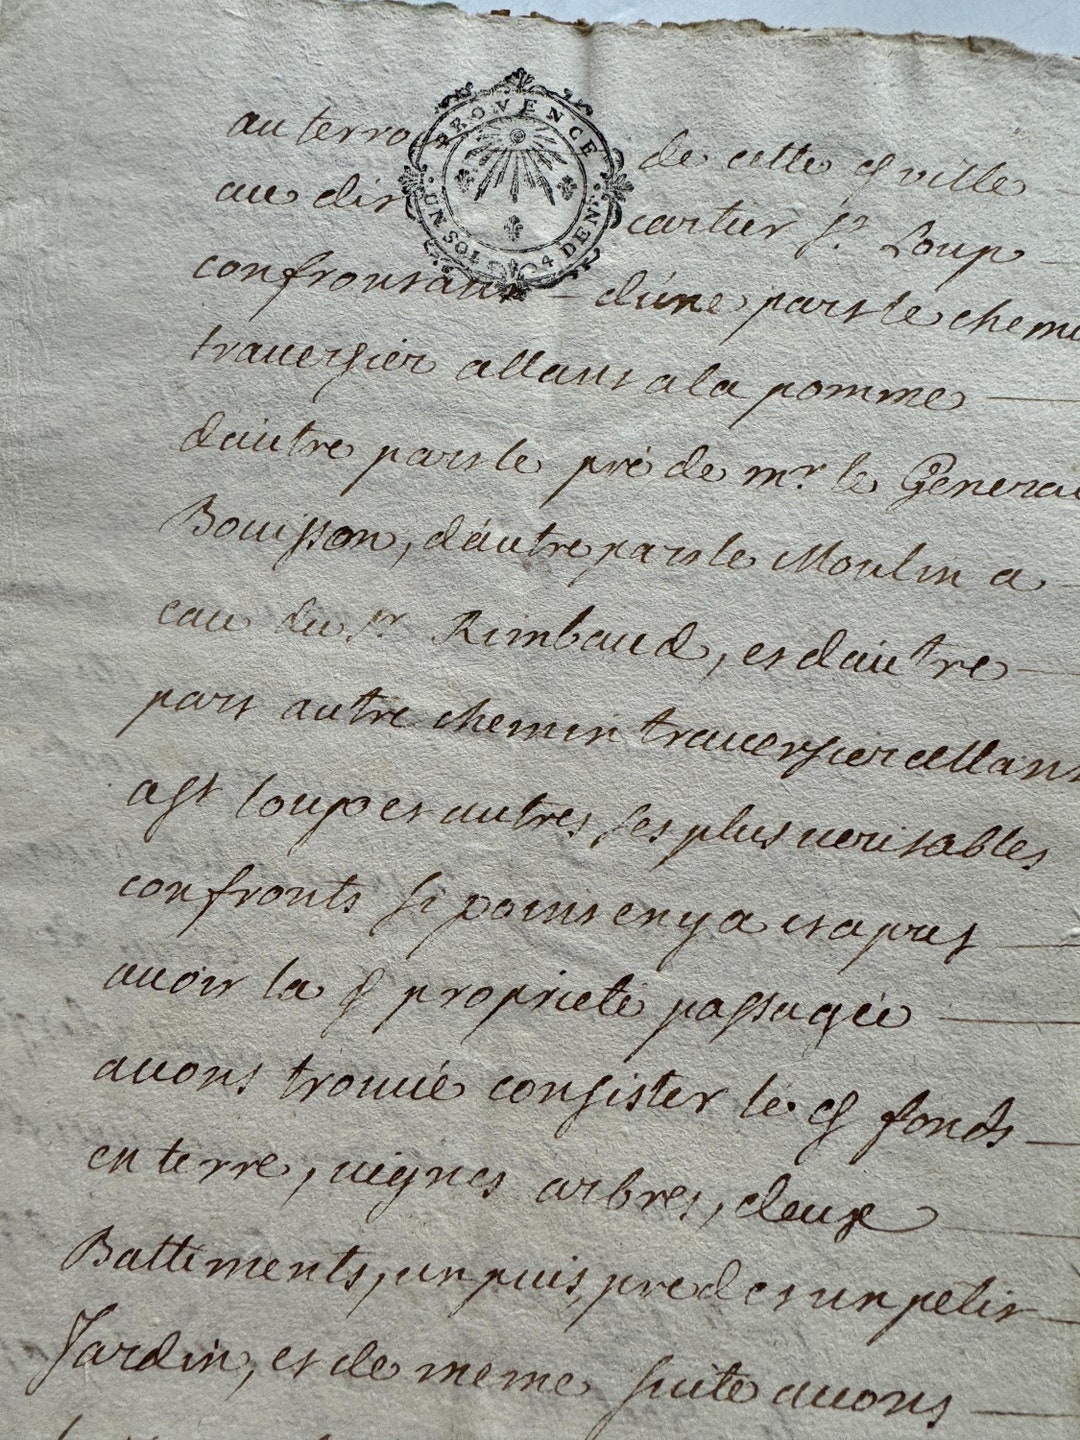 PROVENCE
UN SOL 4 DENS.
au terro de cette ville
au dit cartier St. Loup
confrontant d'une part le chemi
traversier allant a la pomme
d'autre part le pré de mr. le Genera
Bouisson, d'autre part le Moulin a
eau du sr. Rimbaud, et d'autre
part autre chemin traversier allant
a st Loup et autres ses plus veritables
confronts si point en y a et apres
avoir la propriete passagée
avons trouvé consister le fonds
en terre, vignes arbres, deux
Battiments, un puis, pred et un petit
Jardin, et de meme suite avons